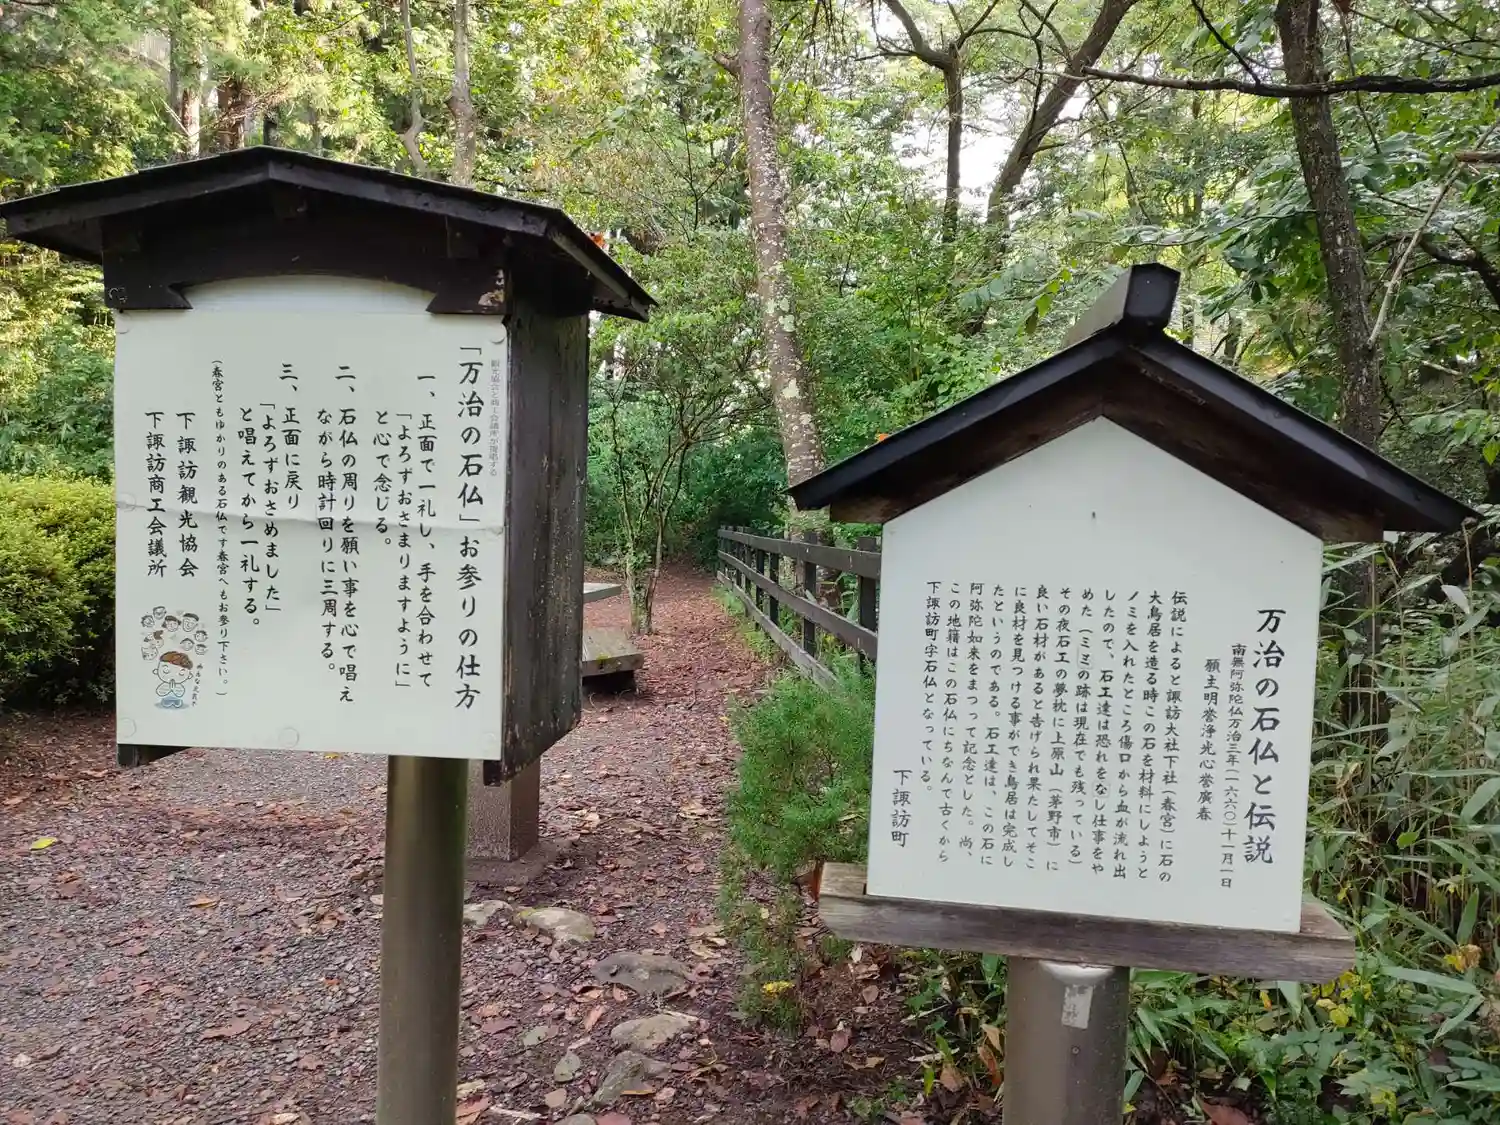 観光協会と商工会議所が提唱する
「万治の石仏」お参りの仕方
一、正面で一礼し、手を合わせて
「よろずおさまりますように」
と心で念じる。
二、石仏の周りを願い事を心で唱え
ながら時計回りに三周する。
三、正面に戻り
「よろずおさめました」
と唱えてから一礼する。
(春宮ともゆかりのある石仏です春宮へもお参り下さい。)
下諏訪観光協会
下諏訪商工会議所
万治の石仏と伝説
南無阿弥陀仏万治三年(一六六〇)十一月一日
願主明誉浄光心誉廣春
伝説によると諏訪大社下社(春宮)に石の
大鳥居を造る時この石を材料にしようと
ノミを入れたところ傷口から血が流れ出
したので、石工達は恐れをなし仕事をや
めた(ミミの跡は現在でも残っている)
その夜石工の夢枕に上原山(茅野市)に
良い石材があると告げられ果たしてそこ
に良材を見つける事ができ鳥居は完成し
たというのである。石工達は、この石に
阿弥陀如来をまつって記念とした。尚、
この地籍はこの石仏にちなんで古くから
下諏訪町字石仏となっている。
下諏訪町